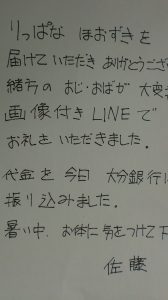 りっぱな ほおずきを
届けていただき ありがとうござ
緒方の おじ・おばが 大喜
画像付きLINEで
お礼を いただきました.
代金を 今日 大分銀行
振り込みました.
暑い中、お体に気をつけて下
佐藤